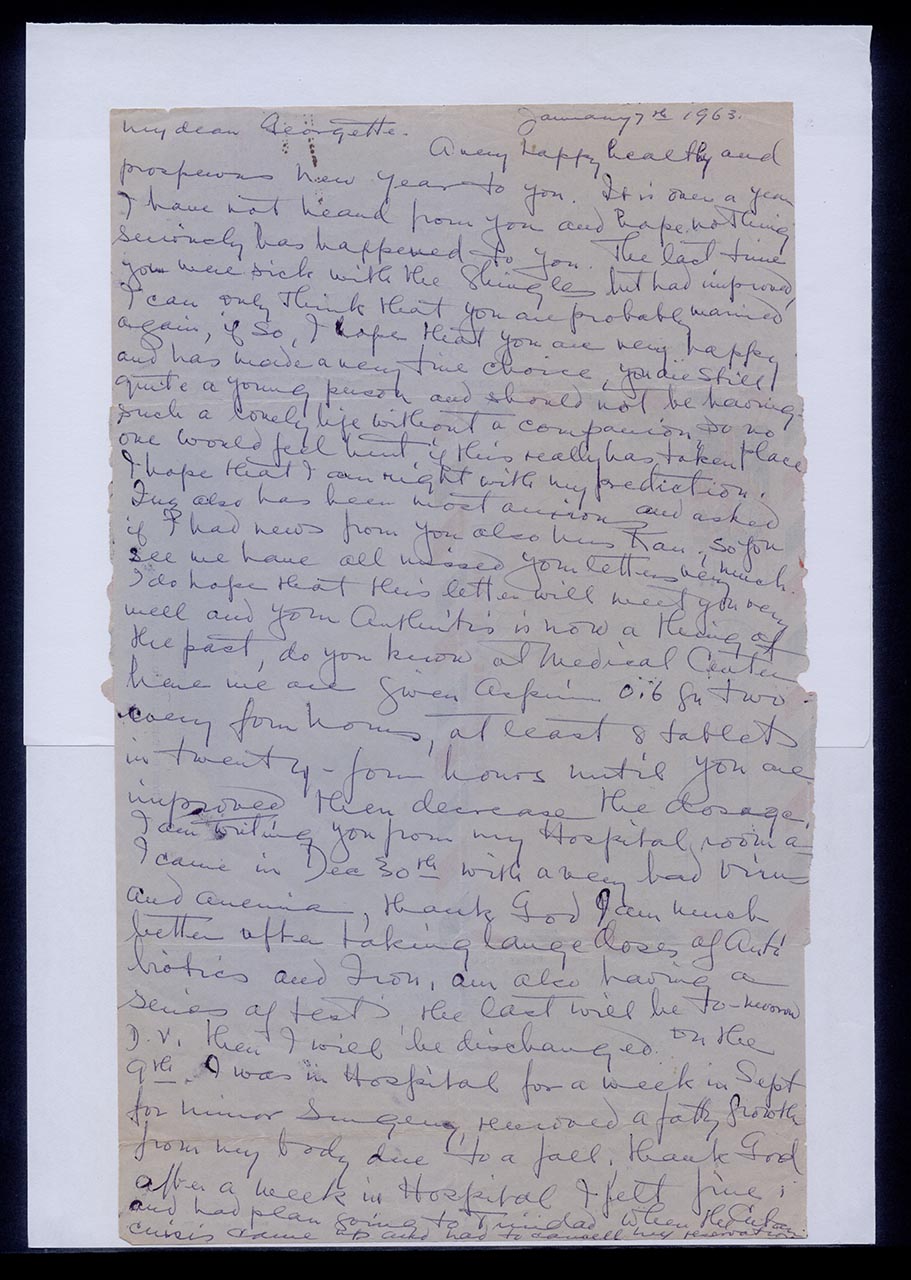 January 7th 1963.
My dear Georgette.
A very happy healthy and
prosperous New Year to you. It is over a year
I have not heard from you and hope nothing
seriously has happened to you. The last time
you were sick with the Shingles but had improved,
I can only think that you are probably married
again, if so, I hope that you are very happy
and has made a very fine choice, you are still
quite a young person and should not be having
such a lonely life without a companion, so no
one would feel hurt if this really has taken place
I hope that I am right with my prediction.
also has been most anxious and asked
if I had news from you also Mrs , so you
see we have all missed your letters very much.
I do hope that this letter will meet you very
well and your Arthritis is now a thing of
the past, do you know at Medical Center
here we are given Aspirin 0.6 gr two
every four hours, at least 8 tablets
in twenty-four hours until you are
improved then decrease the dosage.
I am writing you from my Hospital room
I came in Dec 30th with a very bad Virus
and anemia, thank God I am much
better after taking large doses of Anti
biotics and Iron, am also having a
series of tests the last will be to-morrow
D.V. then I will be discharged on the
9th. I was in Hospital for a week in Sept
for minor Surgery, removed a fatty growth
from my body due to a fall. Thank God
after a week in Hospital I felt fine,
and had plan going to Trinidad when the Cuban
crisis came up and had to cancell my reservation